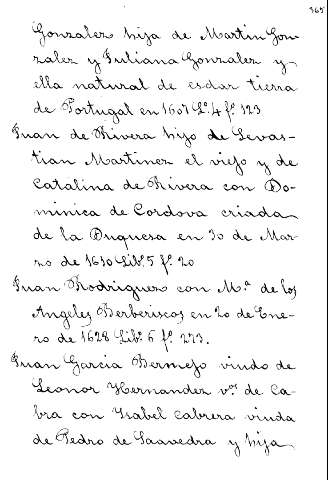 965
Gonzalez hija de Martin Gon-
zalez y Juliana Gonzalez y
ella natural de esdar tierra
de Portugal en 1607 Lº 4 fº 123
Juan de Rivera hijo de Sevas-
tian Martinez el viejo y de
Catalina de Rivera con Do-
minica de Cordova criada
de la Duquesa en 30 de Mar-
zo de 1610 Libº 5 fº 20
Juan Rodriguez con M.ª de los
Angeles Berberiscos en 20 de Ene-
ro de 1628 Libº 6 fº 223.
Juan Garcia Bermejo viudo de
Leonor Hernandez vºs de Ca-
bra con Ysabel Cabrera viuda
de Pedro de Saavedra y hija